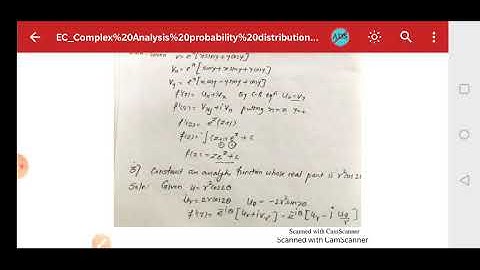 EC_Complex%20Analysis%20probability%20distribution...
ADS
v = eˣ[x siny + y cosy]
Vₓ = eˣ[siny + x siny + y cosy]
V_y = eˣ[x cosy - y siny + cosy]
f'(z) = Uₓ + iVₓ By C-R eqn Uₓ = V_y
f'(z) = V_y + iVₓ putting x=z y=
f'(z) = e^z(z+1)
f(z) = ∫(z+1)e^z + c
f(z) = ze^z + c
3) Construct an analytic function whose real part is r²cos2θ
Soln: Given u = r²cos2θ
U_r = 2r cos2θ U_θ = -2r² sin2θ
f'(z) = e^{-iθ}[U_r + iV_r] = e^{-iθ}[U_r - i U_θ/r]
Scanned with CamScanner
Scanned with CamScanner